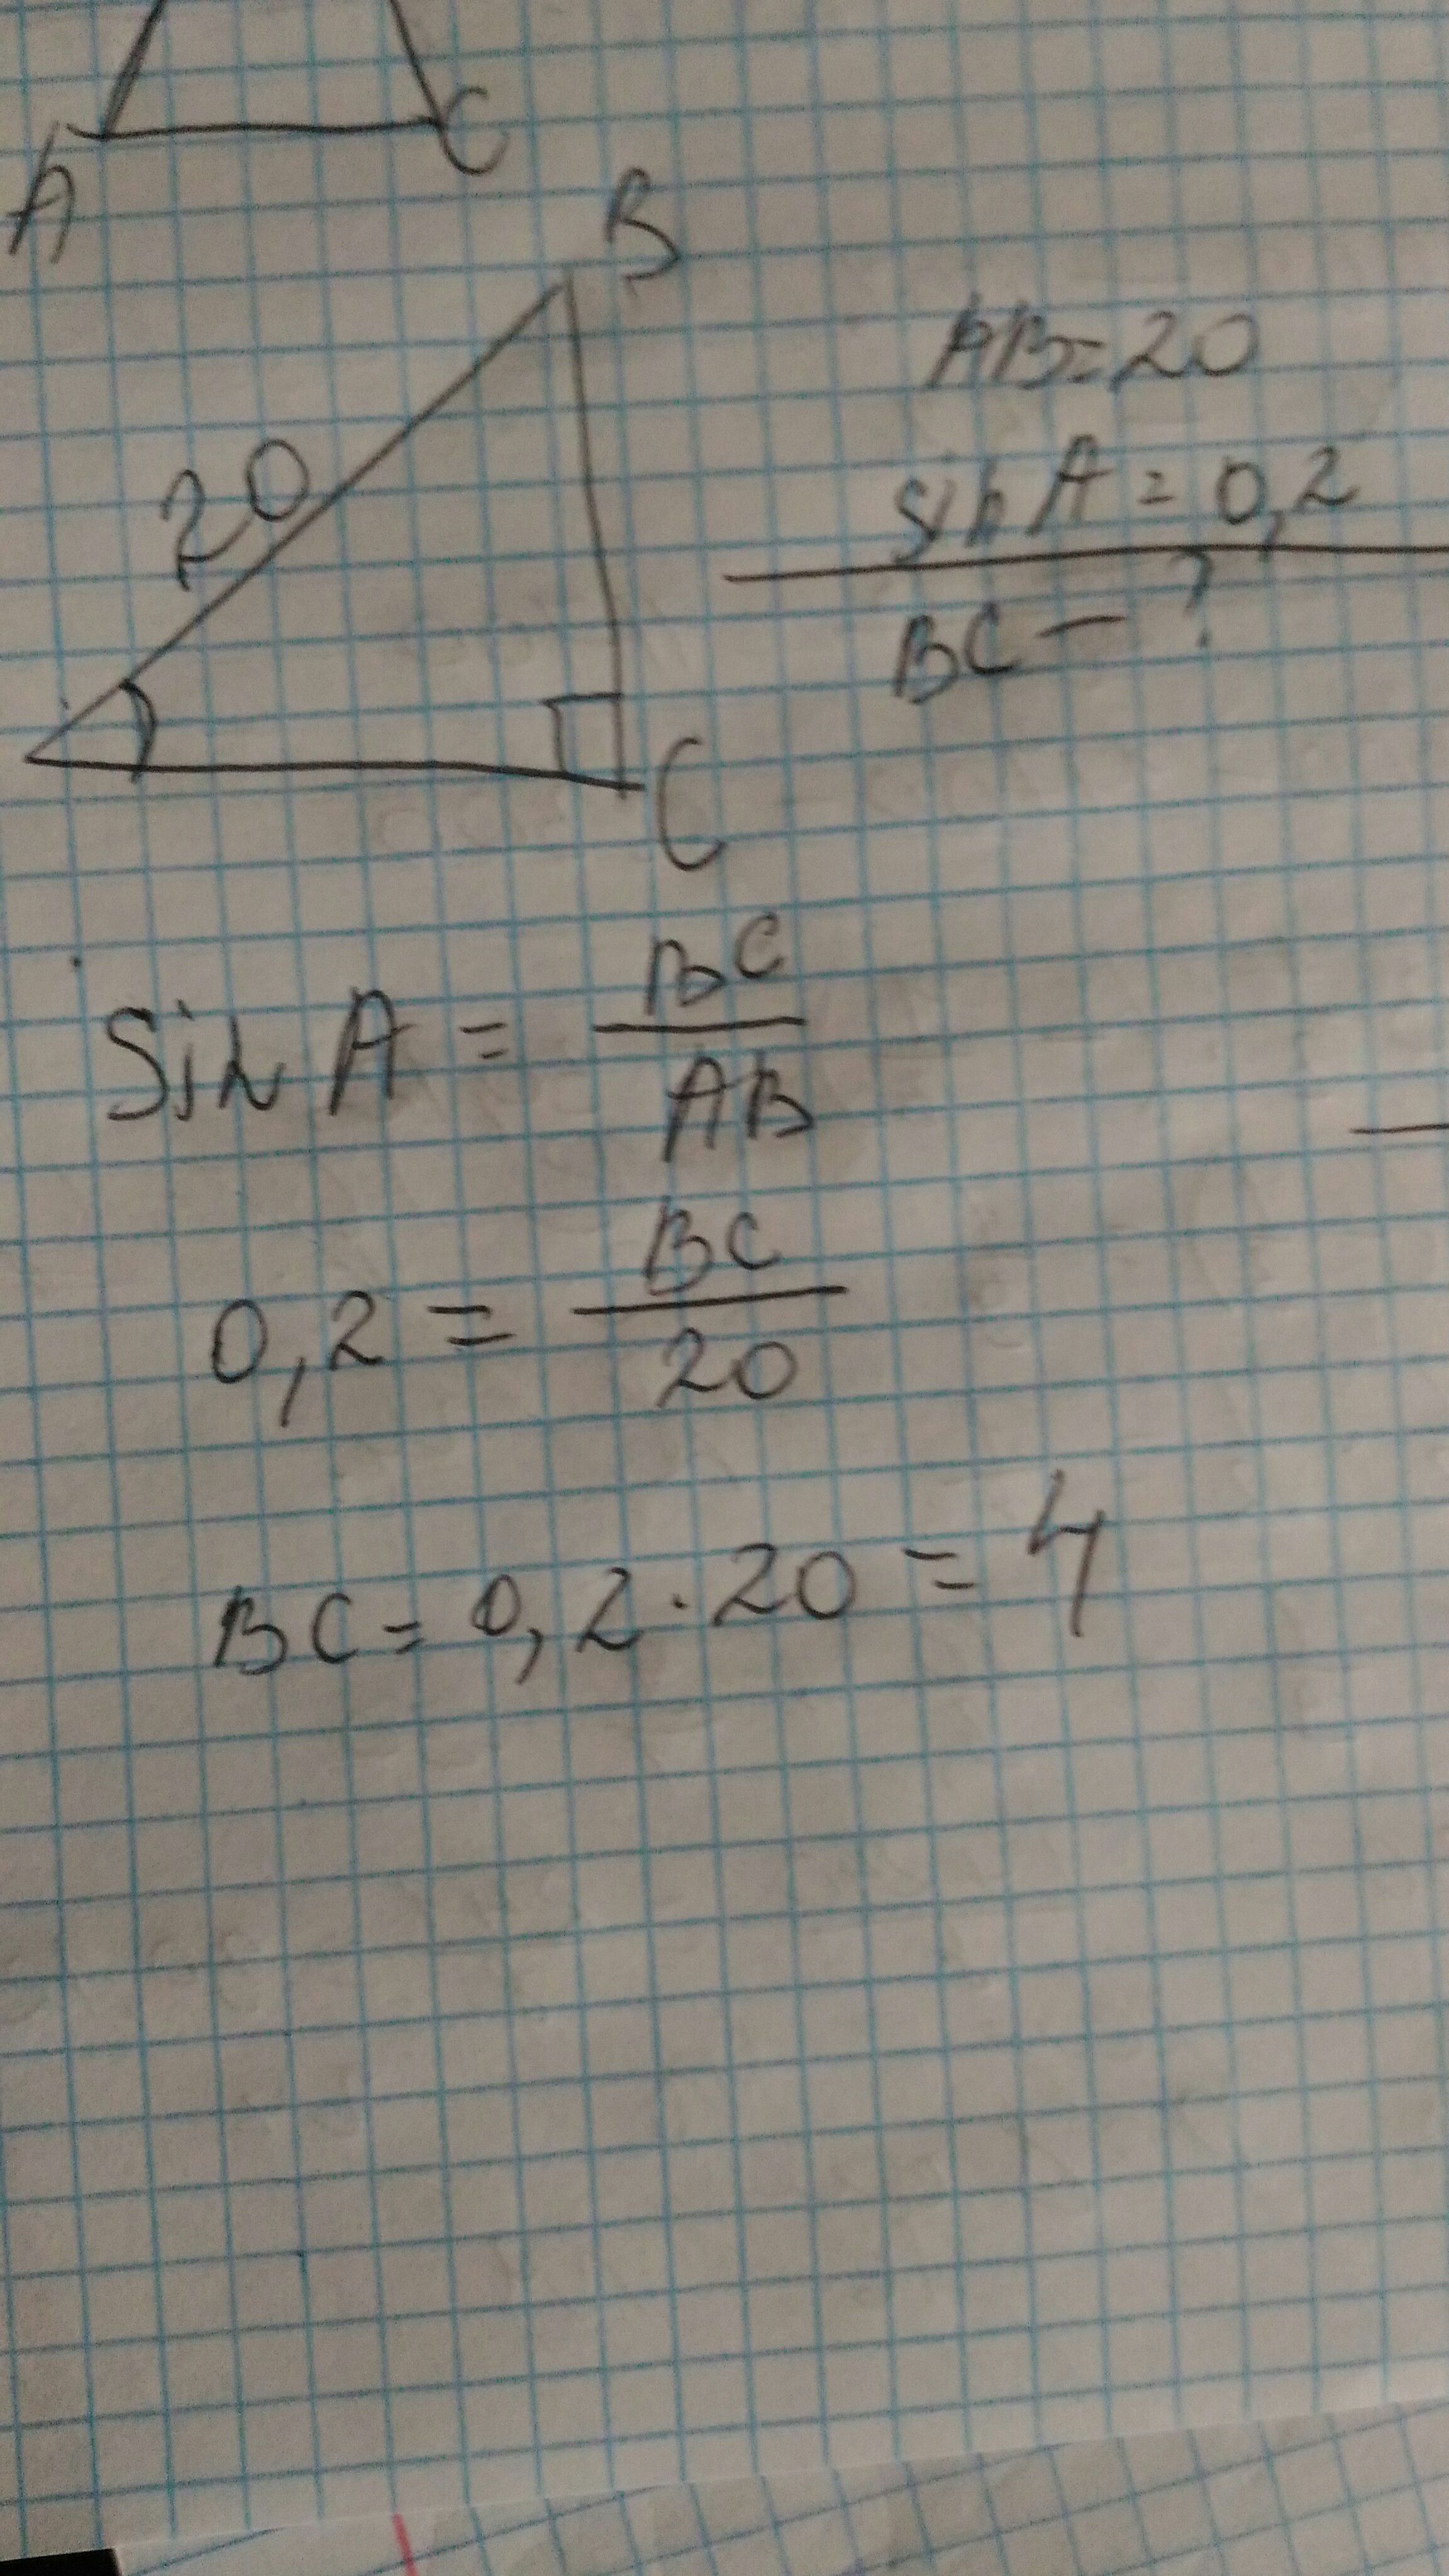 A C
B
20
C
AB=20
sin A = 0,2
BC - ?
Sin A = BC/AB
0,2 = BC/20
BC = 0,2 · 20 = 4